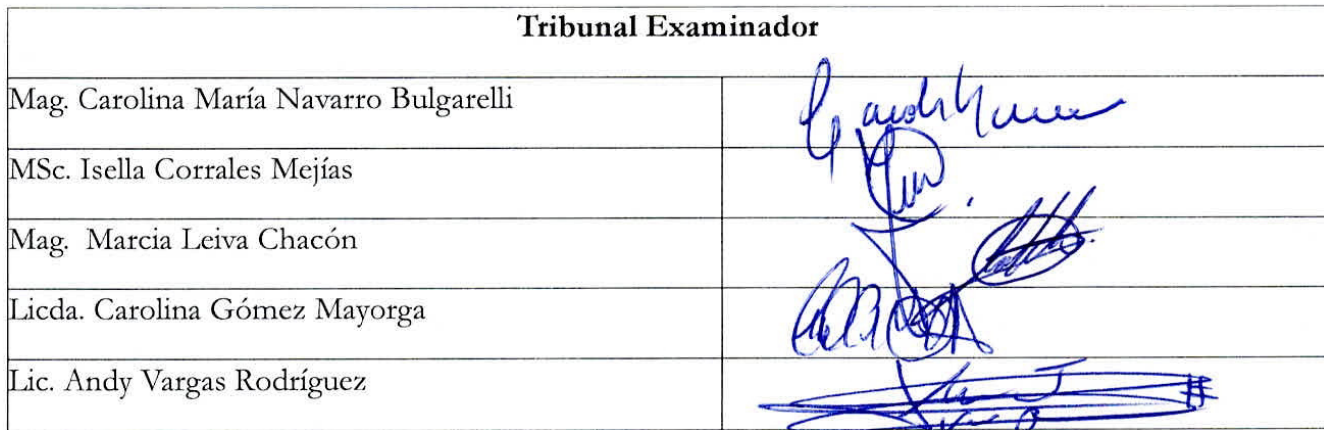 Tribunal Examinador
Mag. Carolina María Navarro Bulgarelli
MSc. Isella Corrales Mejías
Mag. Marcia Leiva Chacón
Licda. Carolina Gómez Mayorga
Lic. Andy Vargas Rodríguez